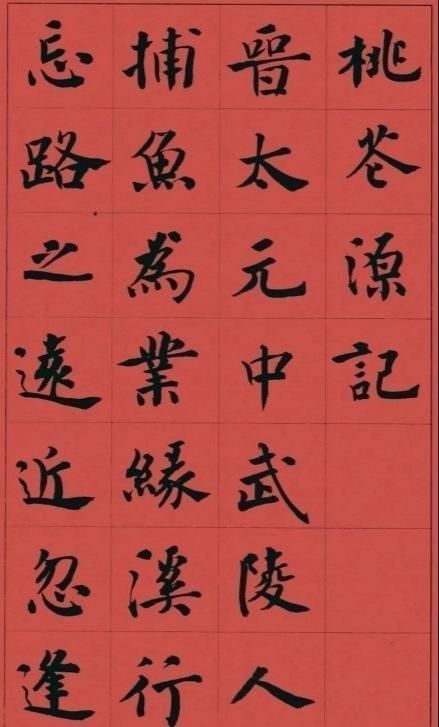 桃花源記
晉太元中武陵人
捕魚為業緣溪行
忘路之遠近忽逢